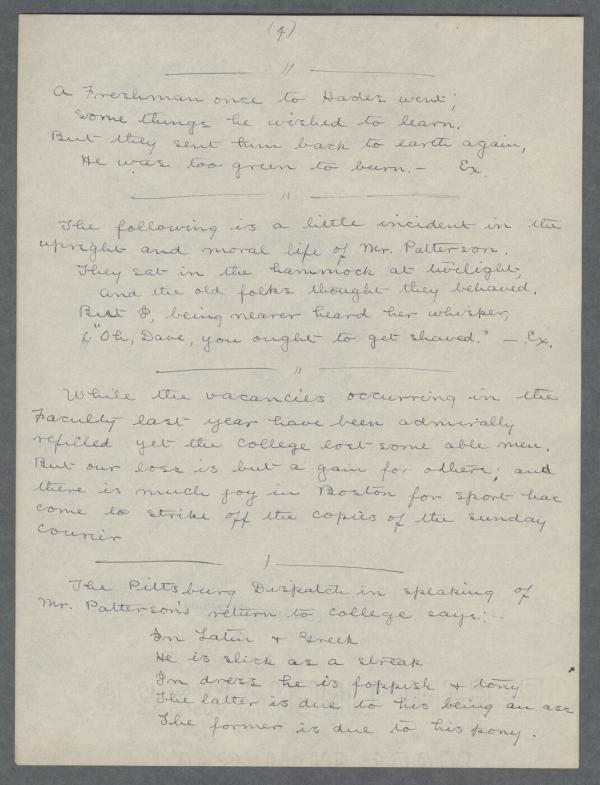 (4)
"
A Freshman once to Hades went;
Some things he wished to learn.
But they sent him back to earth again,
He was too green to burn. – Ex.
"
The following is a little incident in the
upright and moral life of Mr. Patterson.
They sat in the hammock at twilight,
And the old folks thought they behaved.
But I, being nearer heard her whisper,
"Oh, Dave, you ought to get shaved." – Ex.
"
While the vacancies occurring in the
Faculty last year have been admirally
refilled yet the college lost some able men.
But our loss is but a gain for others; and
there is much joy in Boston for sport has
come to strike off the copies of the Sunday
Courier
The Pittsburg Dispatch in speaking of
Mr. Patterson's return to college says:
In Latin & Greek
He is slick as a streak
In dress he is foppish & tony
The latter is due to his being an ass
The former is due to his pony.